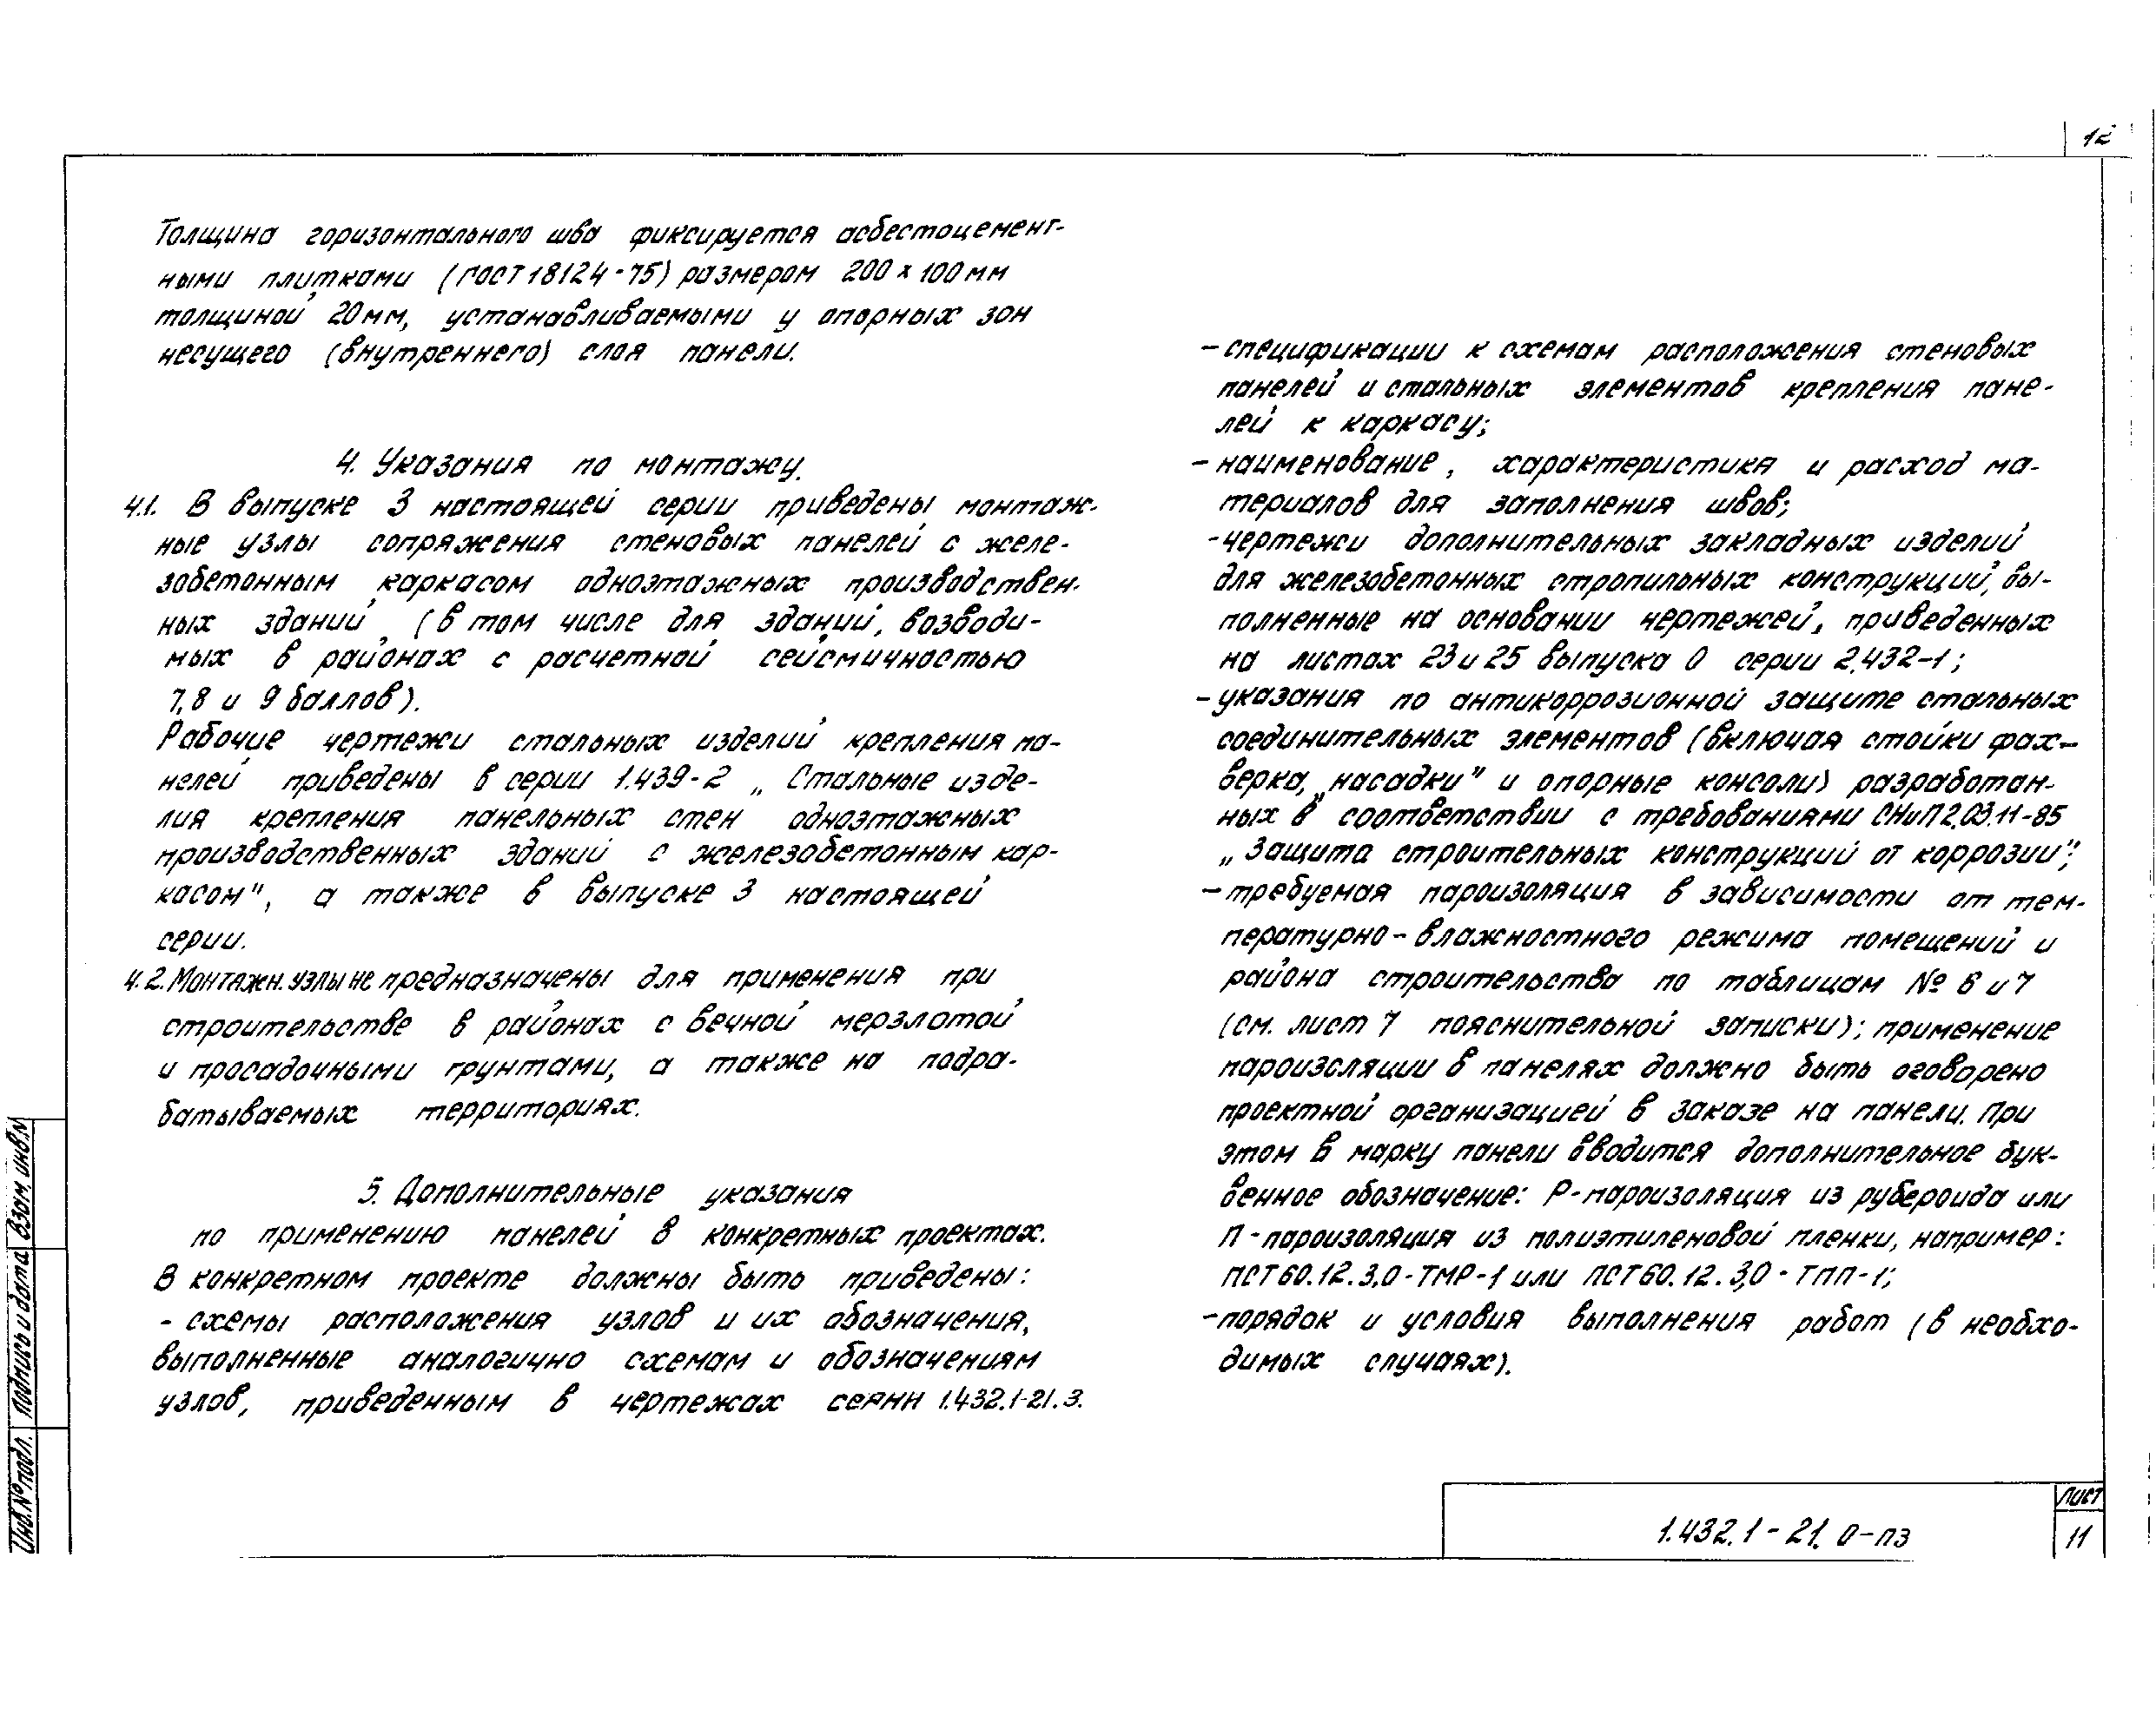 12
Толщина горизонтального шва фиксируется асбестоцемент-
ными плитками (ГОСТ 18124-75) размером 200 х 100 мм
толщиной 20 мм, устанавливаемыми у опорных зон
несущего (внутреннего) слоя панели.
4. Указания по монтажу.
4.1. В выпуске 3 настоящей серии приведены монтаж-
ные узлы сопряжения стеновых панелей с желе-
зобетонным каркасом одноэтажных производствен-
ных зданий (в том числе для зданий, возводи-
мых в районах с расчетной сейсмичностью
7,8 и 9 баллов).
Рабочие чертежи стальных изделий крепления па-
нелей приведены в серии 1.439-2 „Стальные изде-
лия крепления панельных стен одноэтажных
производственных зданий с железобетонным кар-
касом", а также в выпуске 3 настоящей
серии.
4.2. Монтажн. узлы не предназначены для применения при
строительстве в районах с вечной мерзлотой
и просадочными грунтами, а также на подра-
батываемых территориях.
5. Дополнительные указания
по применению панелей в конкретных проектах.
В конкретном проекте должны быть приведены:
- схемы расположения узлов и их обозначения,
выполненные аналогично схемам и обозначениям
узлов, приведенным в чертежах серии 1.432.1-21.3.
- спецификации к схемам расположения стеновых
панелей и стальных элементов крепления пане-
лей к каркасу;
- наименование, характеристика и расход ма-
териалов для заполнения швов;
- чертежи дополнительных закладных изделий
для железобетонных стропильных конструкций, вы-
полненные на основании чертежей, приведенных
на листах 23 и 25 выпуска 0 серии 2.432-1;
- указания по антикоррозионной защите стальных
соединительных элементов (включая стойки фах-
верка, „насадки" и опорные консоли) разработан-
ных в соответствии с требованиями СНиП 2.03.11-85
„Защита строительных конструкций от коррозии";
- требуемая пароизоляция в зависимости от тем-
пературно-влажностного режима помещений и
района строительства по таблицам № 6 и 7
(см. лист 7 пояснительной записки); применение
пароизоляции в панелях должно быть оговорено
проектной организацией в заказе на панели. При
этом в марку панели вводится дополнительное бук-
венное обозначение: Р-пароизоляция из рубероида или
П-пароизоляция из полиэтиленовой пленки, например:
ПСТ60.12.3,0-ТМР-1 или ПСТ60.12.3,0-ТПП-1;
- порядок и условия выполнения работ (в необхо-
димых случаях).
Инв.№ подл.
Подпись и дата
Взам. инв.№
1.432.1-21.0-ПЗ
Лист
11